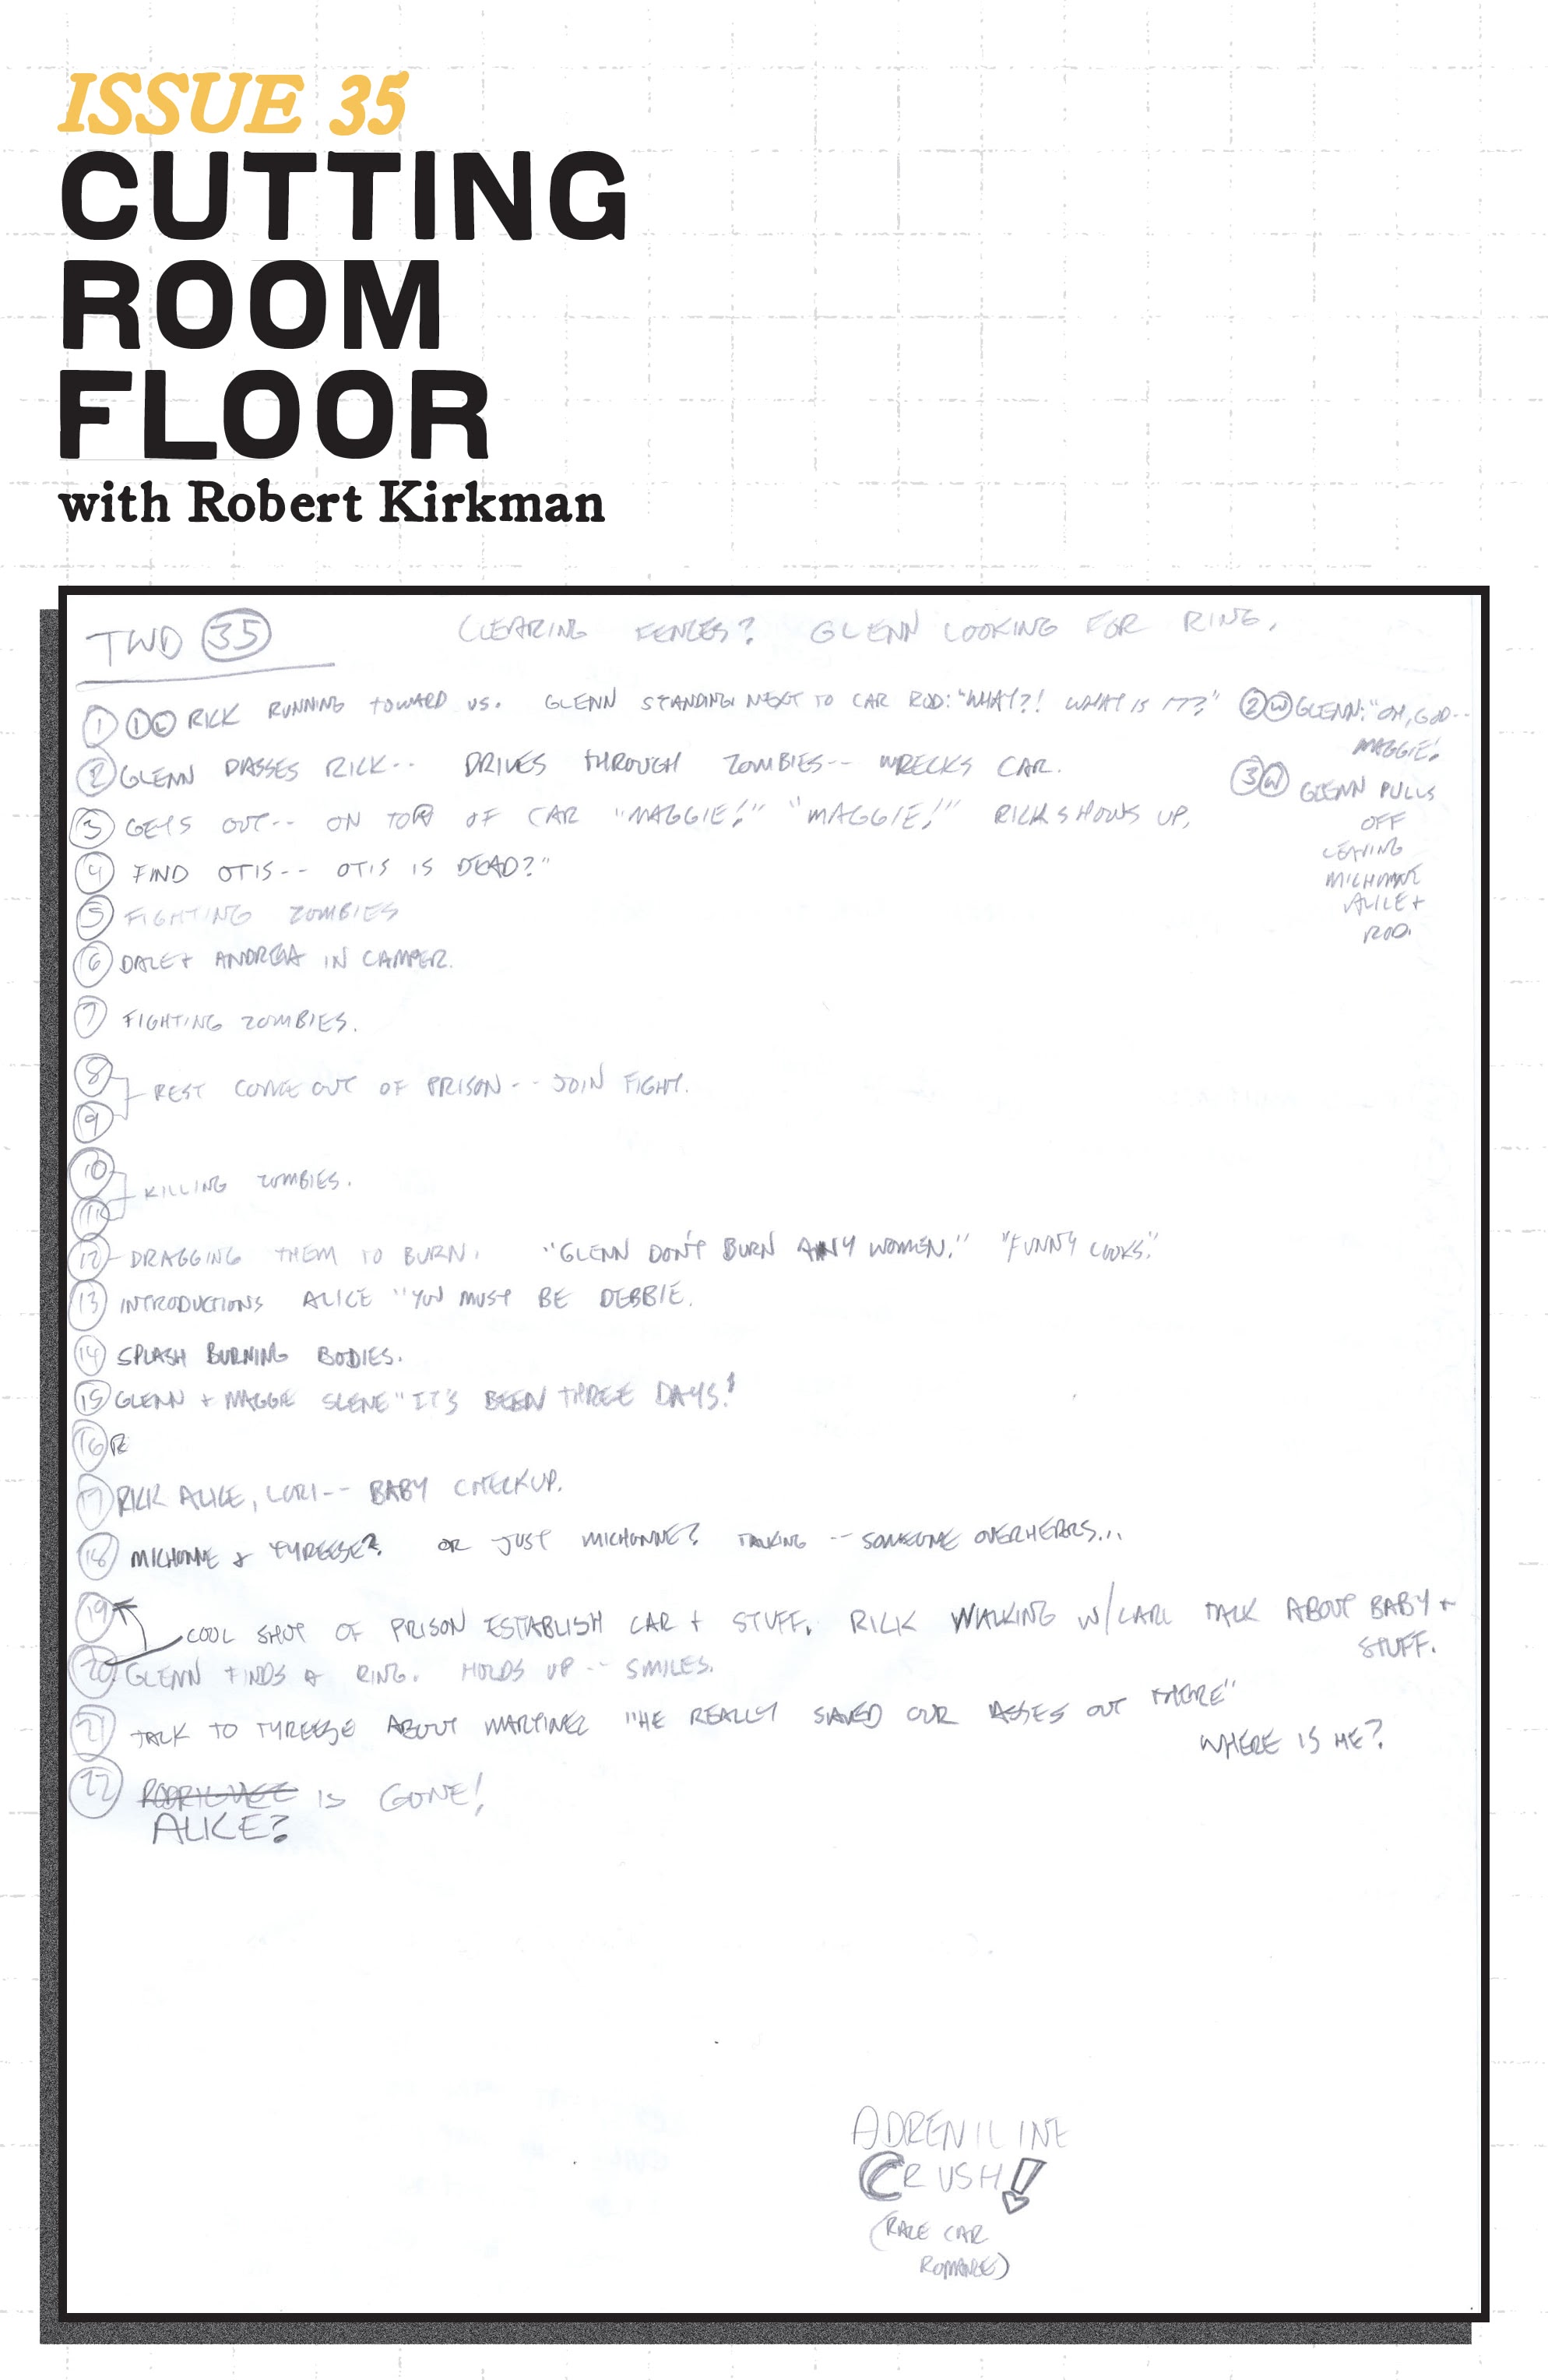 ISSUE 35
CUTTING
ROOM
FLOOR
with Robert Kirkman
TWD 35
CLEARING FENCES? GLENN LOOKING FOR RING.
1 1 L RICK RUNNING TOWARD US. GLENN STANDING NEXT TO CAR ROD: "WHAT?! WHAT IS IT?" 2 W GLENN: "OH, GOD--
MAGGIE!
2 GLENN PASSES RICK-- DRIVES THROUGH ZOMBIES-- WRECKS CAR.
3 W GLENN PULLS
OFF
LEAVING
MICHONNE
ALICE +
ROD.
3 GETS OUT-- ON TOP OF CAR "MAGGIE!" "MAGGIE!" RICK SHOWS UP.
4 FIND OTIS-- OTIS IS DEAD?"
5 FIGHTING ZOMBIES
6 DALE + ANDREA IN CAMPER.
7 FIGHTING ZOMBIES.
8
9
REST COME OUT OF PRISON-- JOIN FIGHT.
10
11
KILLING ZOMBIES.
12 - DRAGGING THEM TO BURN. "GLENN DON'T BURN ANY WOMEN." "FUNNY LOOKS."
13 INTRODUCTIONS ALICE "YOU MUST BE DEBBIE.
14 SPLASH BURNING BODIES.
15 GLENN + MAGGIE SCENE "IT'S BEEN THREE DAYS!
16 R
17 RICK ALICE, LORI-- BABY CHECKUP.
18 MICHONNE & TYREESE? OR JUST MICHONNE? TALKING -- SOMEONE OVERHEARS...
19
COOL SHOT OF PRISON ESTABLISH CAR + STUFF. RICK WALKING W/CARL TALK ABOUT BABY +
STUFF.
20 GLENN FINDS A RING. HOLDS UP -- SMILES.
21 TALK TO TYREESE ABOUT MARTINEZ "HE REALLY SAVED OUR ASSES OUT THERE"
WHERE IS HE?
22 IS GONE!
ALICE?
ADRENILINE
CRUSH!
(RACE CAR
ROMANCE)